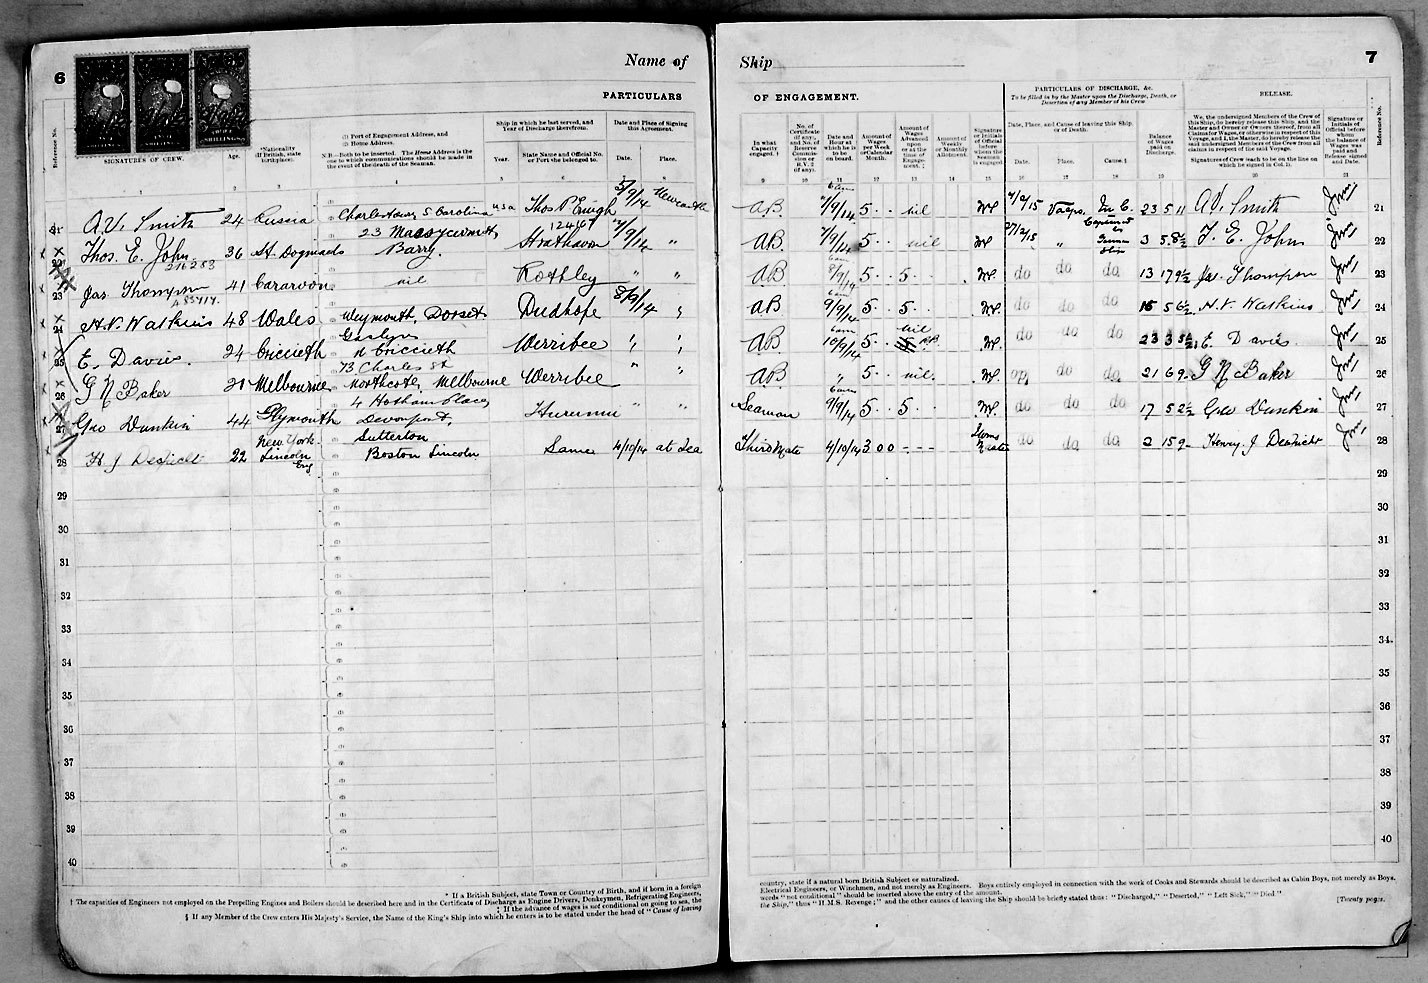 6
Name of
Ship
7
PARTICULARS
OF ENGAGEMENT.
PARTICULARS OF DISCHARGE, &c.
To be filled in by the Master upon the Discharge, Death, or
Desertion of any Member of his Crew
RELEASE.
Reference No.
SIGNATURES OF CREW.
Age.
*Nationality
(If British, state
birthplace).
(1) Port of Engagement Address, and
(2) Home Address.
N.B.—Both to be inserted. The Home Address is the
one to which communications should be made in
the event of the death of the Seaman.
Ship in which he last served, and
Year of Discharge therefrom.
Year.
State Name and Official No.
or Port she belonged to.
Date and Place of Signing
this Agreement.
Date.
Place.
In what
Capacity
engaged. †
No. of
Certificate
(if any),
and No. of
Reserve
Commission
or
R.V. 2
(if any).
Date and
Hour at
which he is
to be
on board.
Amount of
Wages
per Week
or Calendar
Month.
Amount of
Wages
Advanced
upon
or at the
time of
Engagement. ‡
Amount of
Weekly
or Monthly
Allotment.
Signature
or Initials
of Official
before
whom
the Seaman
is engaged.
Date, Place, and Cause of leaving this Ship,
or of Death.
Date.
Place.
Cause. §
Balance
of Wages
paid on
Discharge.
We, the undersigned Members of the Crew of
this Ship, do hereby release this Ship, and the
Master and Owner or Owners thereof, from all
Claims for Wages, or otherwise in respect of this
Voyage, and I, the Master, do hereby release the
said undersigned Members of the Crew from all
claims in respect of the said Voyage.
Signatures of Crew (each to be on the line on
which he signed in Col. 1).
Signature or
Initials of
Official before
whom
the balance of
Wages was
paid and
Release signed
and Date.
Reference No.
1 2 3 4 5 6 7 8 9 10 11 12 13 14 15 16 17 18 19 20 21
A.V. Smith 24 Russia Charlestown S Carolina USA 5/9/14 Newcastle AB 6am 7/9/14 5 nil 5 11 A.V. Smith 21
Thos. E. John 216283 36 St. Dogmaels 23 Barry. Strathavon " AB 5 nil " Captured by German 3 5 8½ T. E. John 22
23 Jas Thompson 41 Cararvon nil Rothley " " AB 5 5 do do do 13 17 9½ Jas. Thompson 23
24 H.V. Watkins 48 Wales Weymouth, Dorset Dudhope 8/9/14 " AB 9/9/14 5 5 do do do 5 6½ H.V. Watkins 24
25 E. Davies 24 Criccieth Criccieth Werribee " " AB 6am 10/9/14 5 nil do do do E. Davies 25
26 G N Baker 20 Melbourne 73 Charles St Northcote, Melbourne Werribee " " AB " 5 nil. do do 21 6 9 G N Baker 26
27 Geo Dunkin 44 Plymouth 4 Hotham Place, Devonport, Hurunui " " Seaman 6am 9/9/14 5 5 do do do 17 5 2½ Geo Dunkin 27
28 22 New York Lincoln Eng Sutterton Boston Lincoln Same 4/10/14 at Sea Third Mate 4/10/14 3 0 0 do do do 2 15 9 Henry J 28
29 29
30 30
31 31
32 32
33 33
34 34
35 35
36 36
37 37
38 38
39 39
40 40
* If a British Subject, state Town or Country of Birth, and if born in a foreign
country, state if a natural born British Subject or naturalized.
† The capacities of Engineers not employed on the Propelling Engines and Boilers should be described here and in the Certificate of Discharge as Engine Drivers, Donkeymen, Refrigerating Engineers,
Electrical Engineers, or Winchmen, and not merely as Engineers. Boys entirely employed in connection with the work of Cooks and Stewards should be described as Cabin Boys, not merely as Boys.
‡ If the advance of wages is not conditional on going to sea, the
words "not conditional" should be inserted above the entry of the amount.
§ If any Member of the Crew enters His Majesty's Service, the Name of the King's Ship into which he enters is to be stated under the head of "Cause of leaving
the Ship," thus "H.M.S. Revenge;" and the other causes of leaving the Ship should be briefly stated thus: "Discharged," "Deserted," "Left Sick," "Died."
[Twenty pages.